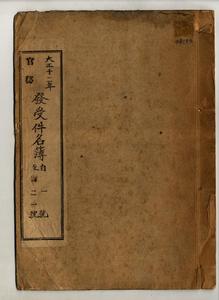 大正十二年
官秘
發受件名簿
自一號
至二一號